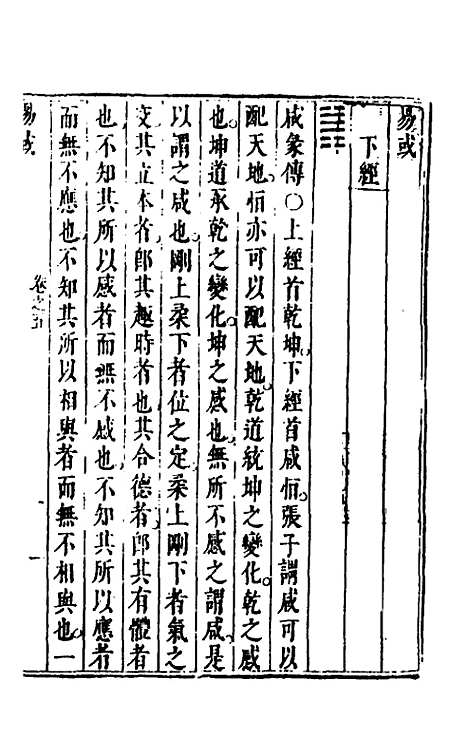 易或
下經
咸彖傳〇上經首乾坤下經首咸恒張子謂咸可以
配天地恒亦可以配天地乾道統坤之變化乾之感
也坤道承乾之變化坤之感也無所不感之謂咸是
以謂之咸也剛上柔下者位之定柔上剛下者氣之
交其立本者郎其趣時者也其合德者郎其有體者
也不知其所以感者而無不感也不知其所以應者
而無不應也不知其所以相與者而無不相與也一
易或
卷之五
一